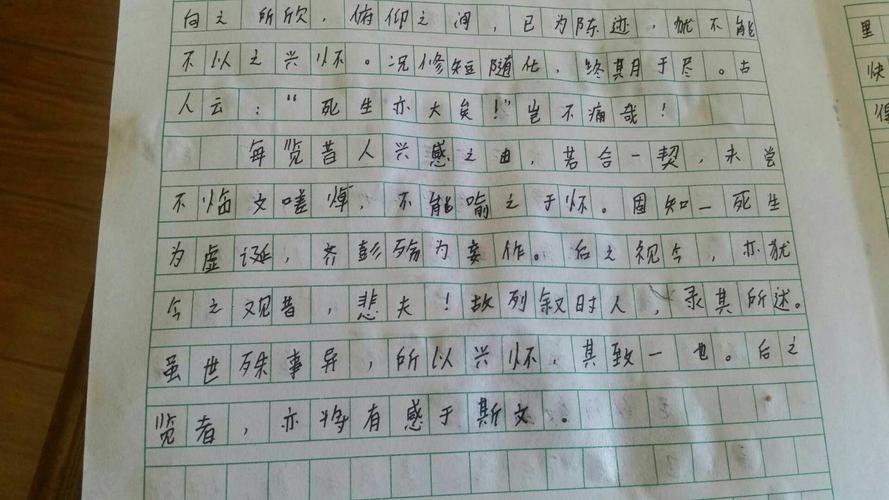 向之所欣，俯仰之间，已为陈迹，犹不能
不以之兴怀。况修短随化，终其月于尽。古
人云：“死生亦大矣！”岂不痛哉！
每览昔人兴感之由，若合一契，未尝
不临文嗟悼，不能喻之于怀。固知一死生
为虚诞，齐彭殇为妄作。后之视今，亦犹
今之观昔，悲夫！故列叙时人，录其所述。
虽世殊事异，所以兴怀，其致一也。后之
览者，亦将有感于斯文。
里
快